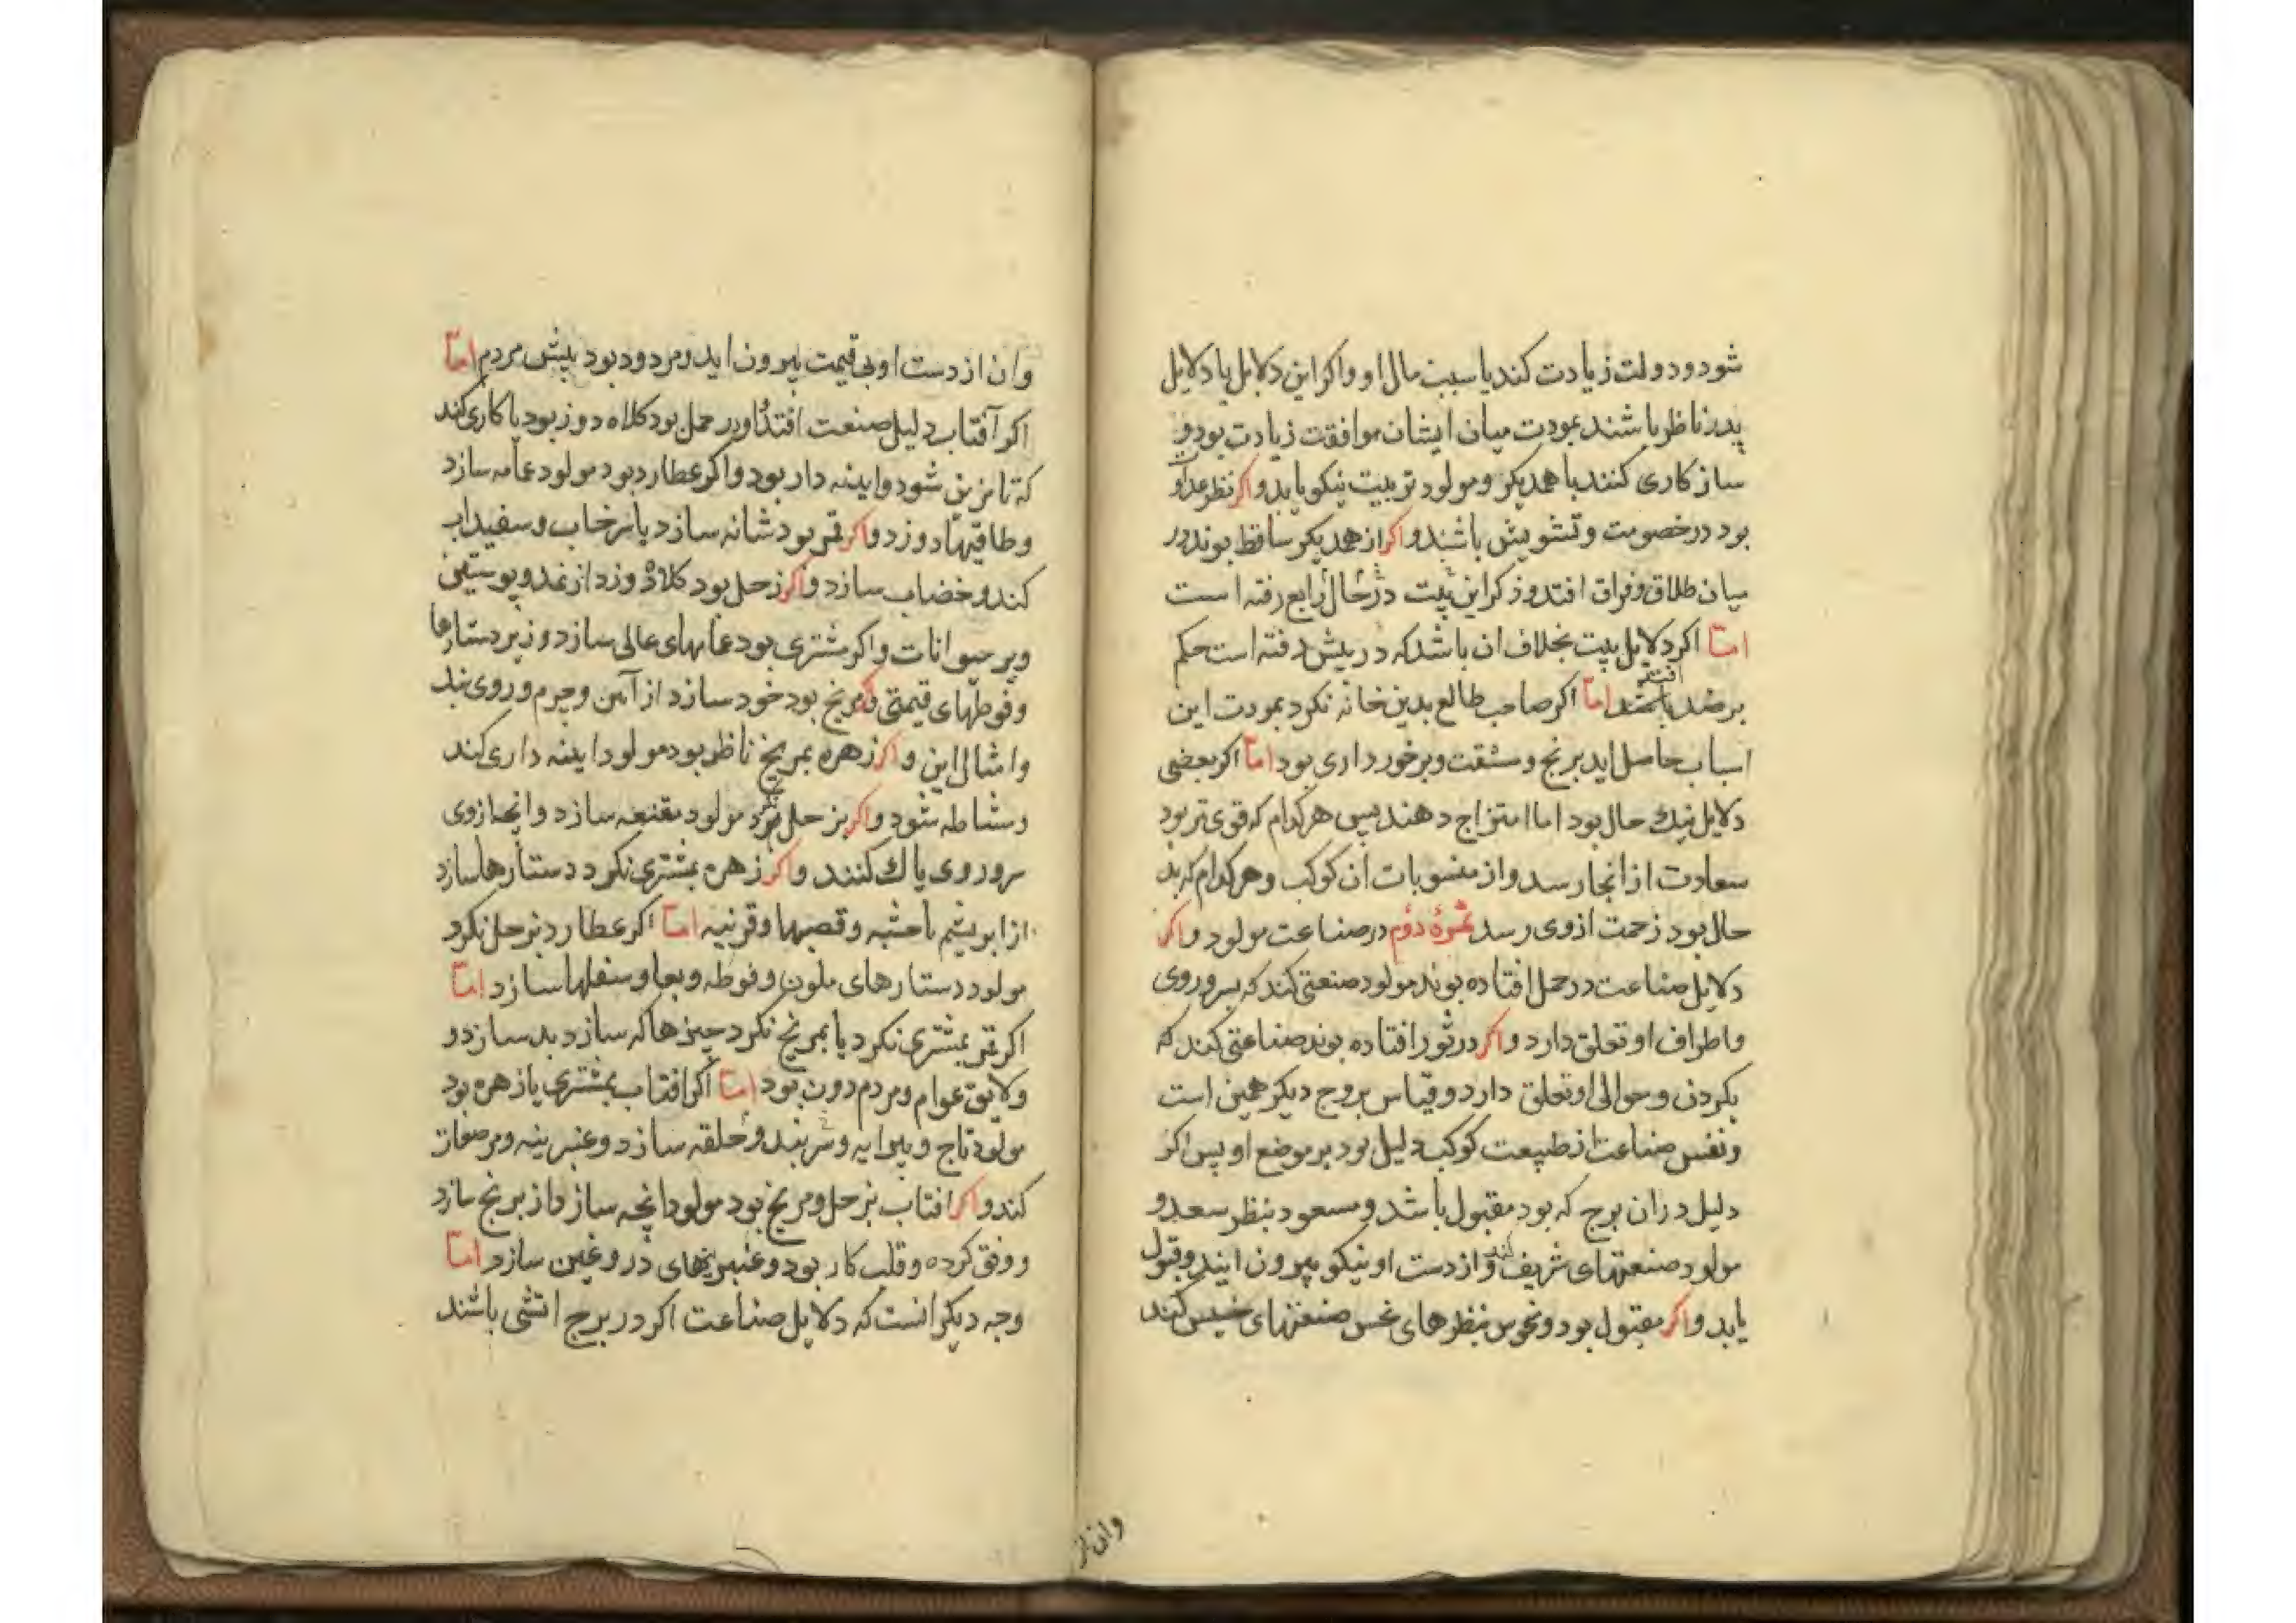 شود و دولت زیادت کند یا سبب مال او واکر این دلایل با دلایل
پدر ناظر باشند بمودت میان ایشان موافقت زیادت بود و
ساز کاری کنند با همدیکر و مولود تربیت نیکو یابد واکر نظر عداو
بود در خصومت و تشویش باشند واکر از همدیکر ساقط بوند در
میان طلاق و فراق افتد و ذکر این بیت در حال رابع رفته است
امّا اکر دلایل بیت بخلاف ان باشد که در پیش رفته است حکم
بر ضد افتد امّا اکر صاحب طالع بدین خانه نکرد بمودت این
اسباب حاصل اید برنج و مشقت و برخورداری بود امّا اکر بعضی
دلایل نیك حال بود اما امتزاج دهند پس هرکدام که قوی تر بود
سعادت از انجا رسد و از منسوبات ان کوکب و هرکدام که بد
حال بود زحمت ازوی رسد ثمرۀ دوّم در صناعت مولود واکر
دلایل صناعت در حمل افتاده بوند مولود صنعتی کند که بسر و روی
واطراف او تعلق دارد واکر در ثور افتاده بوند صناعتی کند که
بکردن و حوالی او تعلق دارد و قیاس بروج دیکر همین است
ونفس صناعت از طبیعت کوکب دلیل بود بر موضع او پس اکر
دلیل در ان برج که بود مقبول باشد و مسعود بنظر سعد و
مولود صنعتهای شریف کند و از دست او نیکو بیرون ایند و قبول
یابد واکر مقبول بود و نحوس بنظرهای نحس صنعتهای خسیس کند
وان از
وان از دست او بی قیمت بیرون اید و مردود بود پیش مردم امّا
اکر آفتاب دلیل صنعت افتد و در حمل بود کلاه دوز بود یا کاری کند
که تا مزین شود و اینه دار بود واکر عطارد بود مولود عمامه سازد
وطاقیها دوزد واکر قمر بود شانه سازد یا سرخاب و سفیداب
کند و خضاب سازد واکر زحل بود کلاه دوزد از نمد و پوستین
وپر حیوانات واکر مشتری بود عمامهای عالی سازد و زیر دستارها
وفوطهای قیمتی واکر مریخ بود خود سازد از آهن و چرم و روی بند
وامثال این واکر زهره بمریخ ناظر بود مولود اینه داری کند
ومشاطه شود واکر بزحل نکرد مولود مقنعه سازد و انچه ازوی
سر و روی پاك کنند واکر زهره بمشتری نکرد دستارها سازد
از ابریشم با حشیه و قصبها و قزنیه امّا اکر عطارد بزحل نکرد
مولود دستارهای ملون و فوطه و سفلها سازد امّا
اکر قمر بمشتری نکرد یا بمریخ نکرد چیزها که سازد بد سازد و
ولایق عوام و مردم دون بود امّا اکر افتاب بمشتری یا زهره بود
مولود تاج و پیرایه و سربند و حلقه سازد و عنبرینه و مرصعات
کند واکر افتاب بزحل و مریخ بود مولود انچه سازد از برنج سازد
و قلب کار بود و عنبرینهای دروغین سازد امّا
وجه دیکر انست که دلایل صناعت اکر در برج اتشی باشند